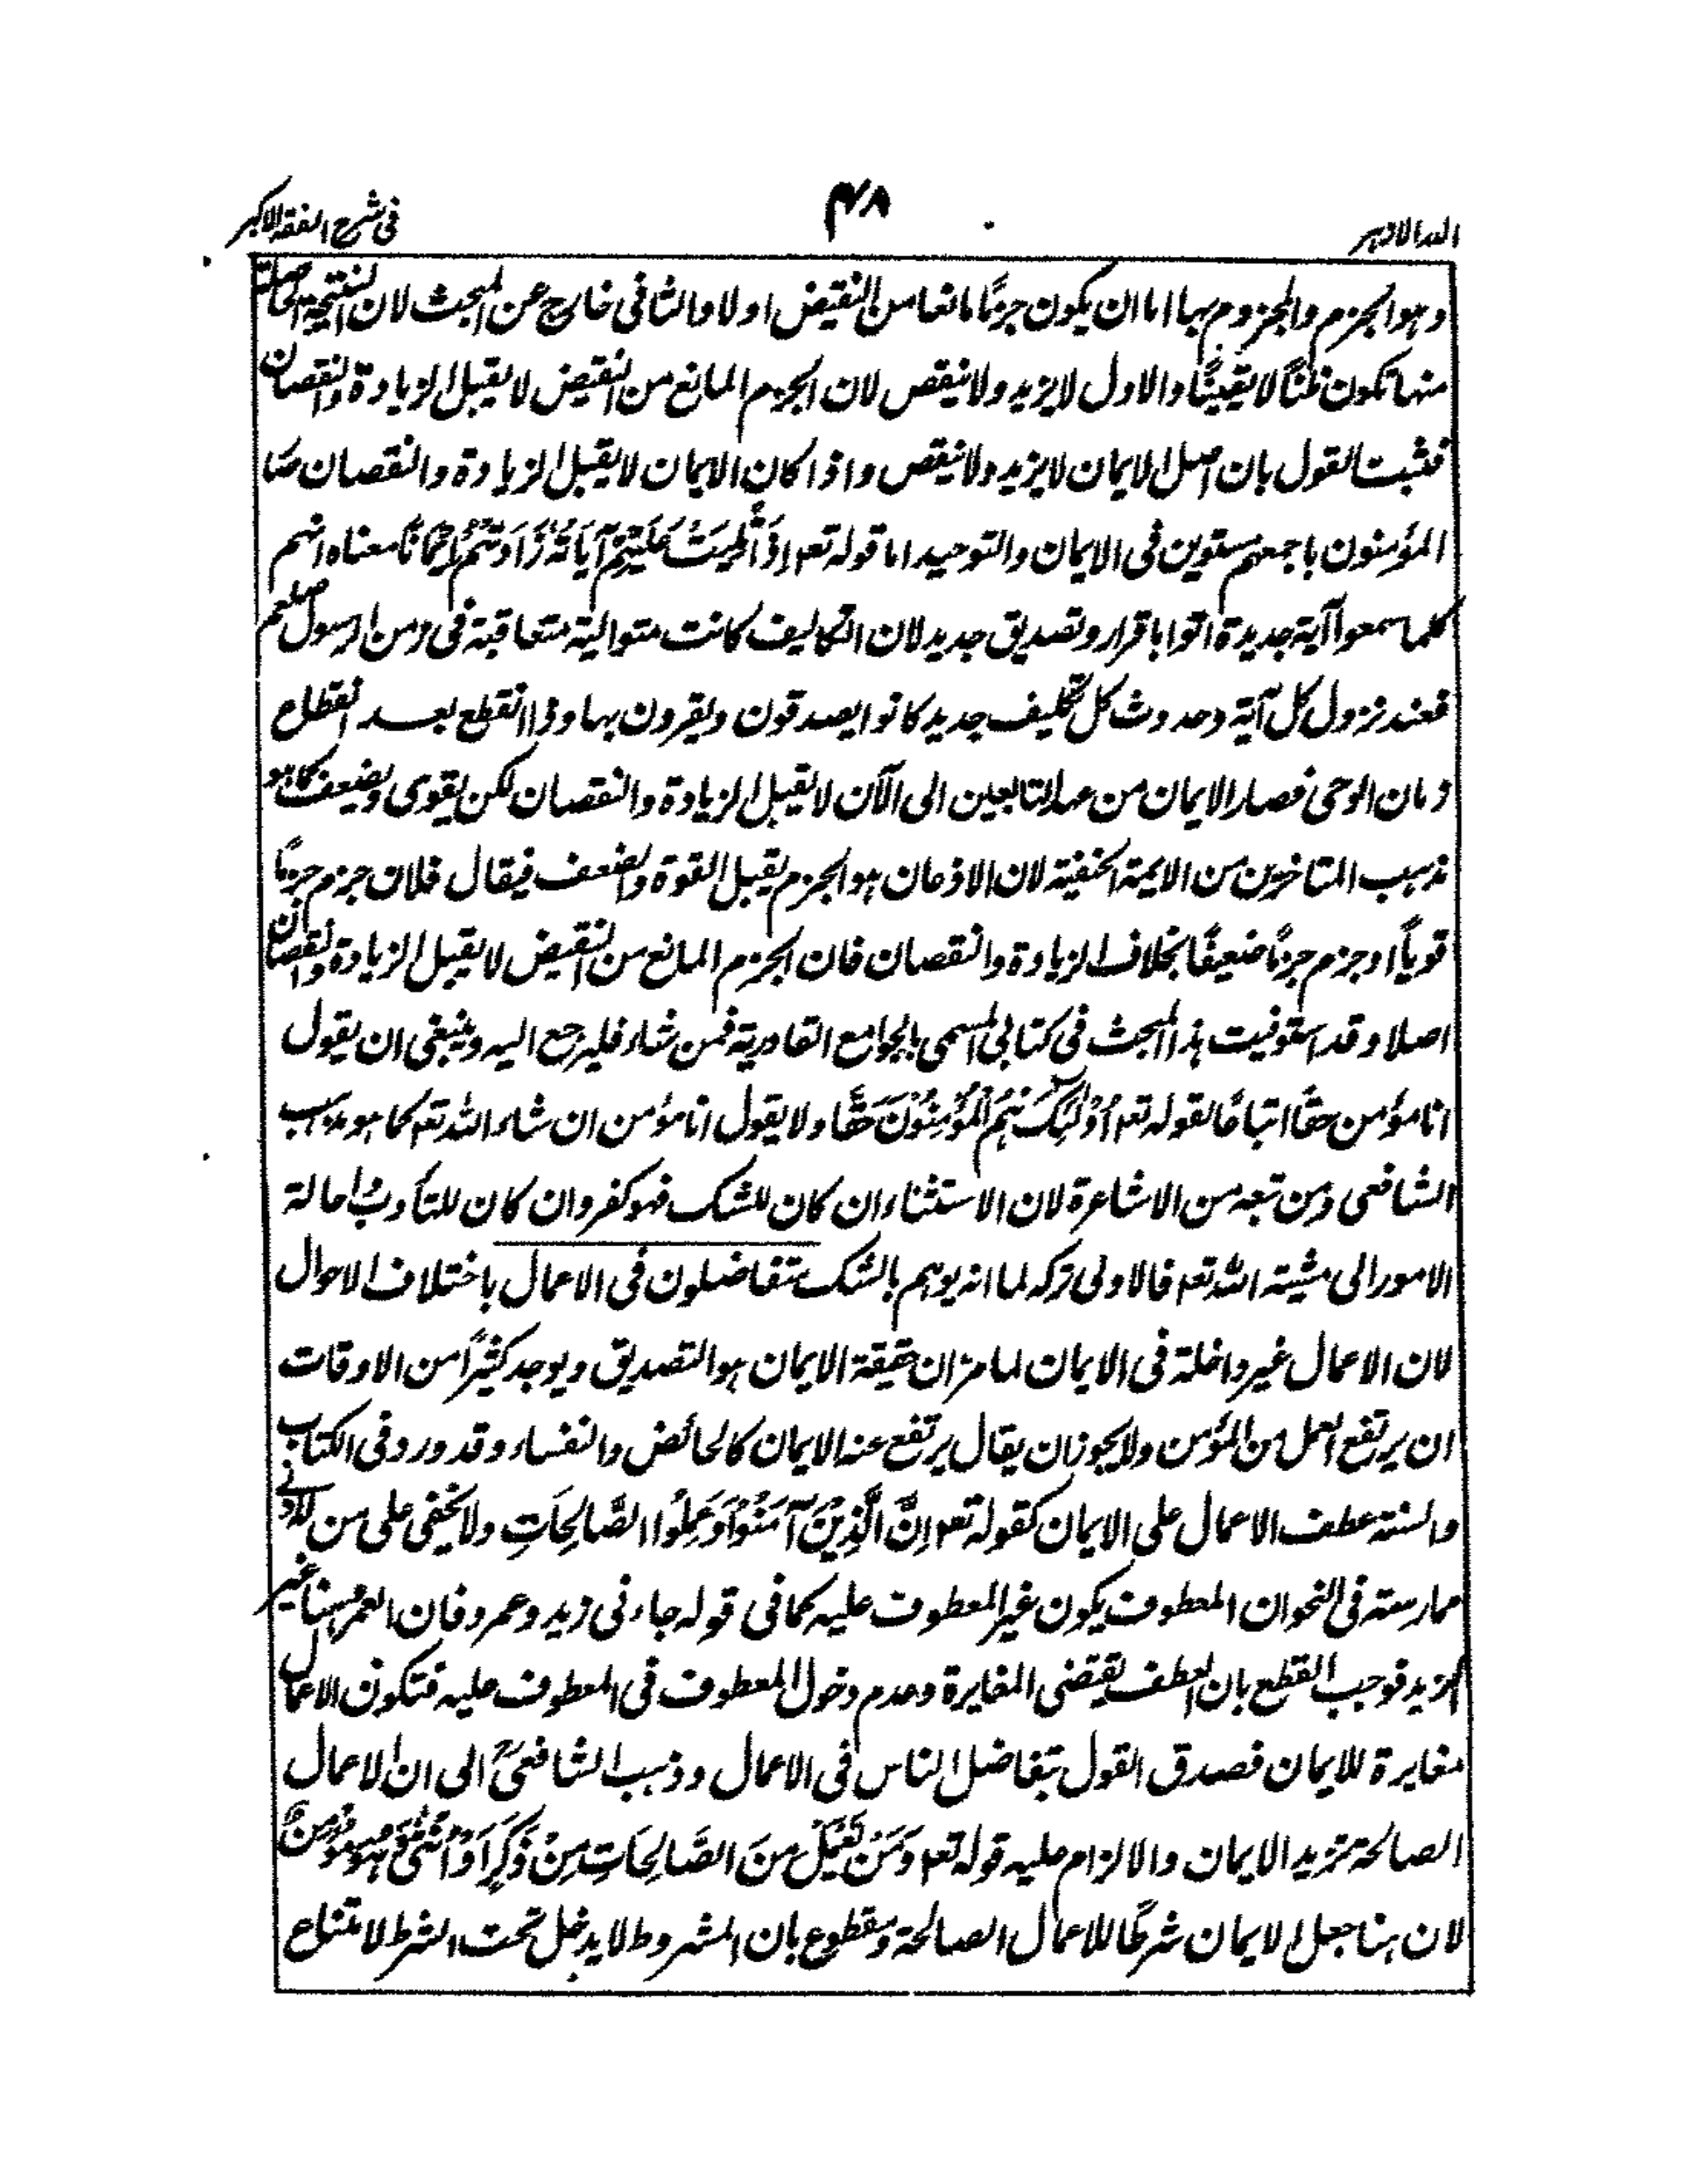 الدر الازهر
۴۸
فی شرح الفقه الاکبر
وهو الجزم والمجزوم بها اما ان یکون جزمًا مانعا من النقیض اولا والثانی خارج عن المبحث لان النتیجة الحاصلة
منها تکون ظنًا لا یقینًا والاول لا یزید ولا ینقص لان الجزم المانع من النقیض لا یقبل الزیادة والنقصان
فثبت القول بان اصل الایمان لا یزید ولا ینقص واذا کان الایمان لا یقبل الزیادة والنقصان صار
المؤمنون باجمعهم مستوین فی الایمان والتوحید اما قوله تعم اِذَا تُلِیَتْ عَلَیْهِمْ آیَاتُهٗ زَادَتْهُمْ اِیْمَانًا معناه انهم
کلما سمعوا آیة جدیدة اتوا باقرار وتصدیق جدید لان التکالیف کانت متوالیة متعاقبة فی زمن الرسول صلعم
فعند نزول کل آیة وحدوث کل تکلیف جدید کانوا یصدقون ویقرون بها وذا انقطع بعد انقطاع
زمان الوحی فصار الایمان من عهد التابعین الی الآن لا یقبل الزیادة والنقصان لکن یقوی ویضعف کما هو
مذهب المتاخرین من الایمة الحنفیة لان الاذعان هو الجزم یقبل القوة والضعف فیقال فلان جزم جزمًا
قویاً او جزم جزمًا ضعیفًا بخلاف الزیادة والنقصان فان الجزم المانع من النقیض لا یقبل الزیادة والنقصان
اصلا وقد استوفیت هذا المبحث فی کتابی المسمی بالجوامع القادریة فمن شاء فلیرجع الیه وینبغی ان یقول
انا مؤمن حقًا اتباعًا لقوله تعم اُوْلٰٓئِکَ هُمُ الْمُؤْمِنُوْنَ حَقًّا ولا یقول انا مؤمن ان شاء الله تعم کما هو مذهب
الشافعی ومن تبعه من الاشاعرة لان الاستثناء ان کان للشک فهو کفر وان کان للتأدب واحالة
الامور الی مشیته الله تعم فالاولی ترکه لما انه یوهم بالشک متفاضلون فی الاعمال باختلاف الاحوال
لان الاعمال غیر داخلة فی الایمان لما مر ان حقیقة الایمان هو التصدیق ویوجد کثیرًا من الاوقات
ان یرتفع العمل من المؤمن ولا یجوز ان یقال یرتفع عنه الایمان کالحائض والنفساء وقد ورد فی الکتاب
والسنة عطف الاعمال علی الایمان کقوله تعم اِنَّ الَّذِیْنَ آمَنُوْا وَعَمِلُوا الصَّالِحَاتِ ولا یخفی علی من له ادنی
ممارسته فی النحو ان المعطوف یکون غیر المعطوف علیه کما فی قوله جاءنی زید وعمرو فان العمر ههنا غیر
الزید فوجب القطع بان العطف یقتضی المغایرة وعدم دخول المعطوف فی المعطوف علیه فتکون الاعمال
مغایرة للایمان فصدق القول بتفاضل الناس فی الاعمال وذهب الشافعیؒ الی ان الاعمال
الصالحة تزید الایمان والالزام علیه قوله تعم وَمَنْ یَّعْمَلْ مِنَ الصَّالِحَاتِ مِنْ ذَکَرٍ اَوْ اُنْثٰی وَهُوَ مُؤْمِنٌ
لان هنا جعل الایمان شرطًا للاعمال الصالحة ومقطوع بان المشروط لا یدخل تحت الشرط لامتناع